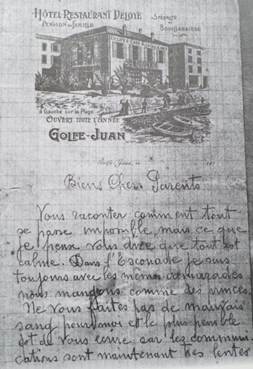 HÔTEL RESTAURANT DELOYE
PENSION DE FAMILLE
SPÉCIALITÉ DE
BOUILLABAISSE
à Gauche sur la Plage
OUVERT TOUTE L'ANNÉE
GOLFE-JUAN
Golfe-Juan, le
Biens Chers Parents
Vous raconter comment tout
se passe impossible mais ce que
je peux vous dire que tout est
calme. Dans l'Escouade je suis
toujours avec les mêmes camarades
nous mangeons comme des princes.
Ne vous faites pas de mauvais
sang pour moi et le plus pénible
est de vous écrire car les communi-
cations sont maintenant très lentes